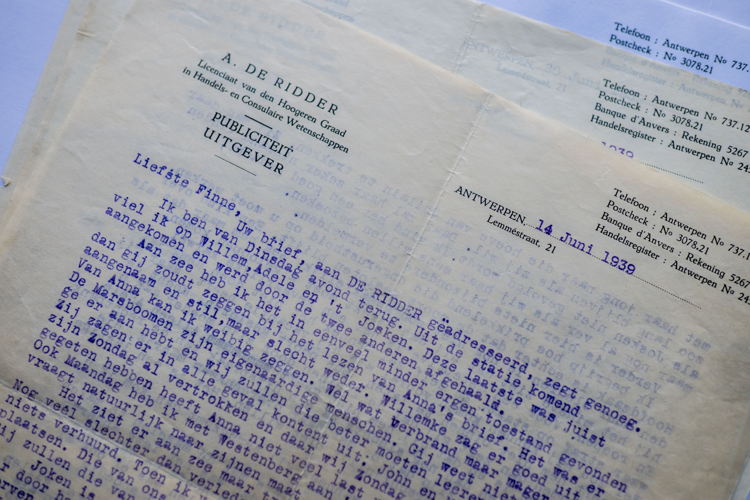 A. DE RIDDER
Licenciaat van den Hoogeren Graad
in Handels- en Consulaire Wetenschappen
PUBLICITEIT
UITGEVER
Telefoon : Antwerpen No 737.
Postcheck : No 3078.21
Telefoon : Antwerpen No 737.12
Postcheck : No 3078.21
Banque d'Anvers : Rekening 5267
Handelsregister : Antwerpen No 24
1939
Telefoon : Antwerpen No 737.1
Postcheck : No 3078.21
Banque d'Anvers : Rekening 5267
Handelsregister : Antwerpen No 24
ANTWERPEN, 14 Juni 1939
Lemméstraat, 21
Liefste Finne, Uw brief, aan DE RIDDER geädresseerd, zegt genoeg.
Ik ben van Dinsdag avond terug. Uit de statie komend
viel ik op Willem, Adele en 't Josken. Deze laatste was juist
aangekomen en werd door de twee anderen afgehaald.
Aan zee heb ik het in eenveel minder ergen toestand gevonden
dan gij zoudt zeggen bij het lezen van Anna's brief. Het was er
aangenaam en stil, maar slecht weder. Willemke zag er goed uit
van Anna kan ik weibig zeggen. Wel wat verbrand maar mager
De Marsboomen zijn eigenaardige menschen. Gij weet niet
ge er aan hebt en wij zullen die beter moeten leeren
Zij zagen er in alle geval kontent uit. John en
zijn Zondag al vertrokken en daar wij Zondag
gegeten hebben heeft Anna niet veel last
Ook Maandag heb ik met Westenberg aan
vraagt natuurlijk naar zijnen maat
Het ziet er aan zee maar
Nog veel slechter dan
niets verhuurd. Toen ik
plaatsen. Die van
ij zullen die
Joken die van
r door he